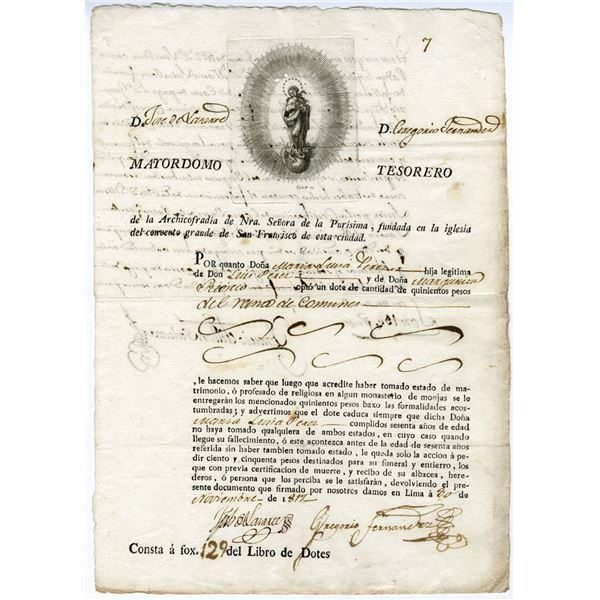 7
D. Jose de Lavared
D. Gregorio Fernandez
MAYORDOMO
TESORERO
de la Archicofradia de Nra. Señora de la Purísima, fundada en la iglesia
del convento grande de San Francisco de esta ciudad.
POR quanto Doña Maria Luisa Perez hija legítima
de Don Luis Perez y de Doña Margarita
Pacheco optó un dote de cantidad de quinientos pesos
del ramo de comunes
, le hacemos saber que luego que acredite haber tomado estado de ma-
trimonio, ó profesado de religiosa en algun monasterio de monjas se le
entregarán los mencionados quinientos pesos baxo las formalidades acos-
tumbradas; y advertimos que el dote caduca siempre que dicha Doña
Maria Luisa Perez cumplidos sesenta años de edad
no haya tomado qualquiera de ambos estados, en cuyo caso quando
llegue su fallecimiento, ó este acontezca antes de la edad de sesenta años
referida sin haber tambien tomado estado, le queda solo la accion á pe-
dir ciento y cinquenta pesos destinados para su funeral y entierro, los
que con previa certificacion de muerte, y recibo de su albacea, herede-
ros, ó persona que los perciba se le satisfarán, devolviendo el pre-
sente documento que firmado por nosotros damos en Lima á 30 de
Noviembre de 1812
Gregorio Fernandez
Consta á fox. 129 del Libro de Dotes